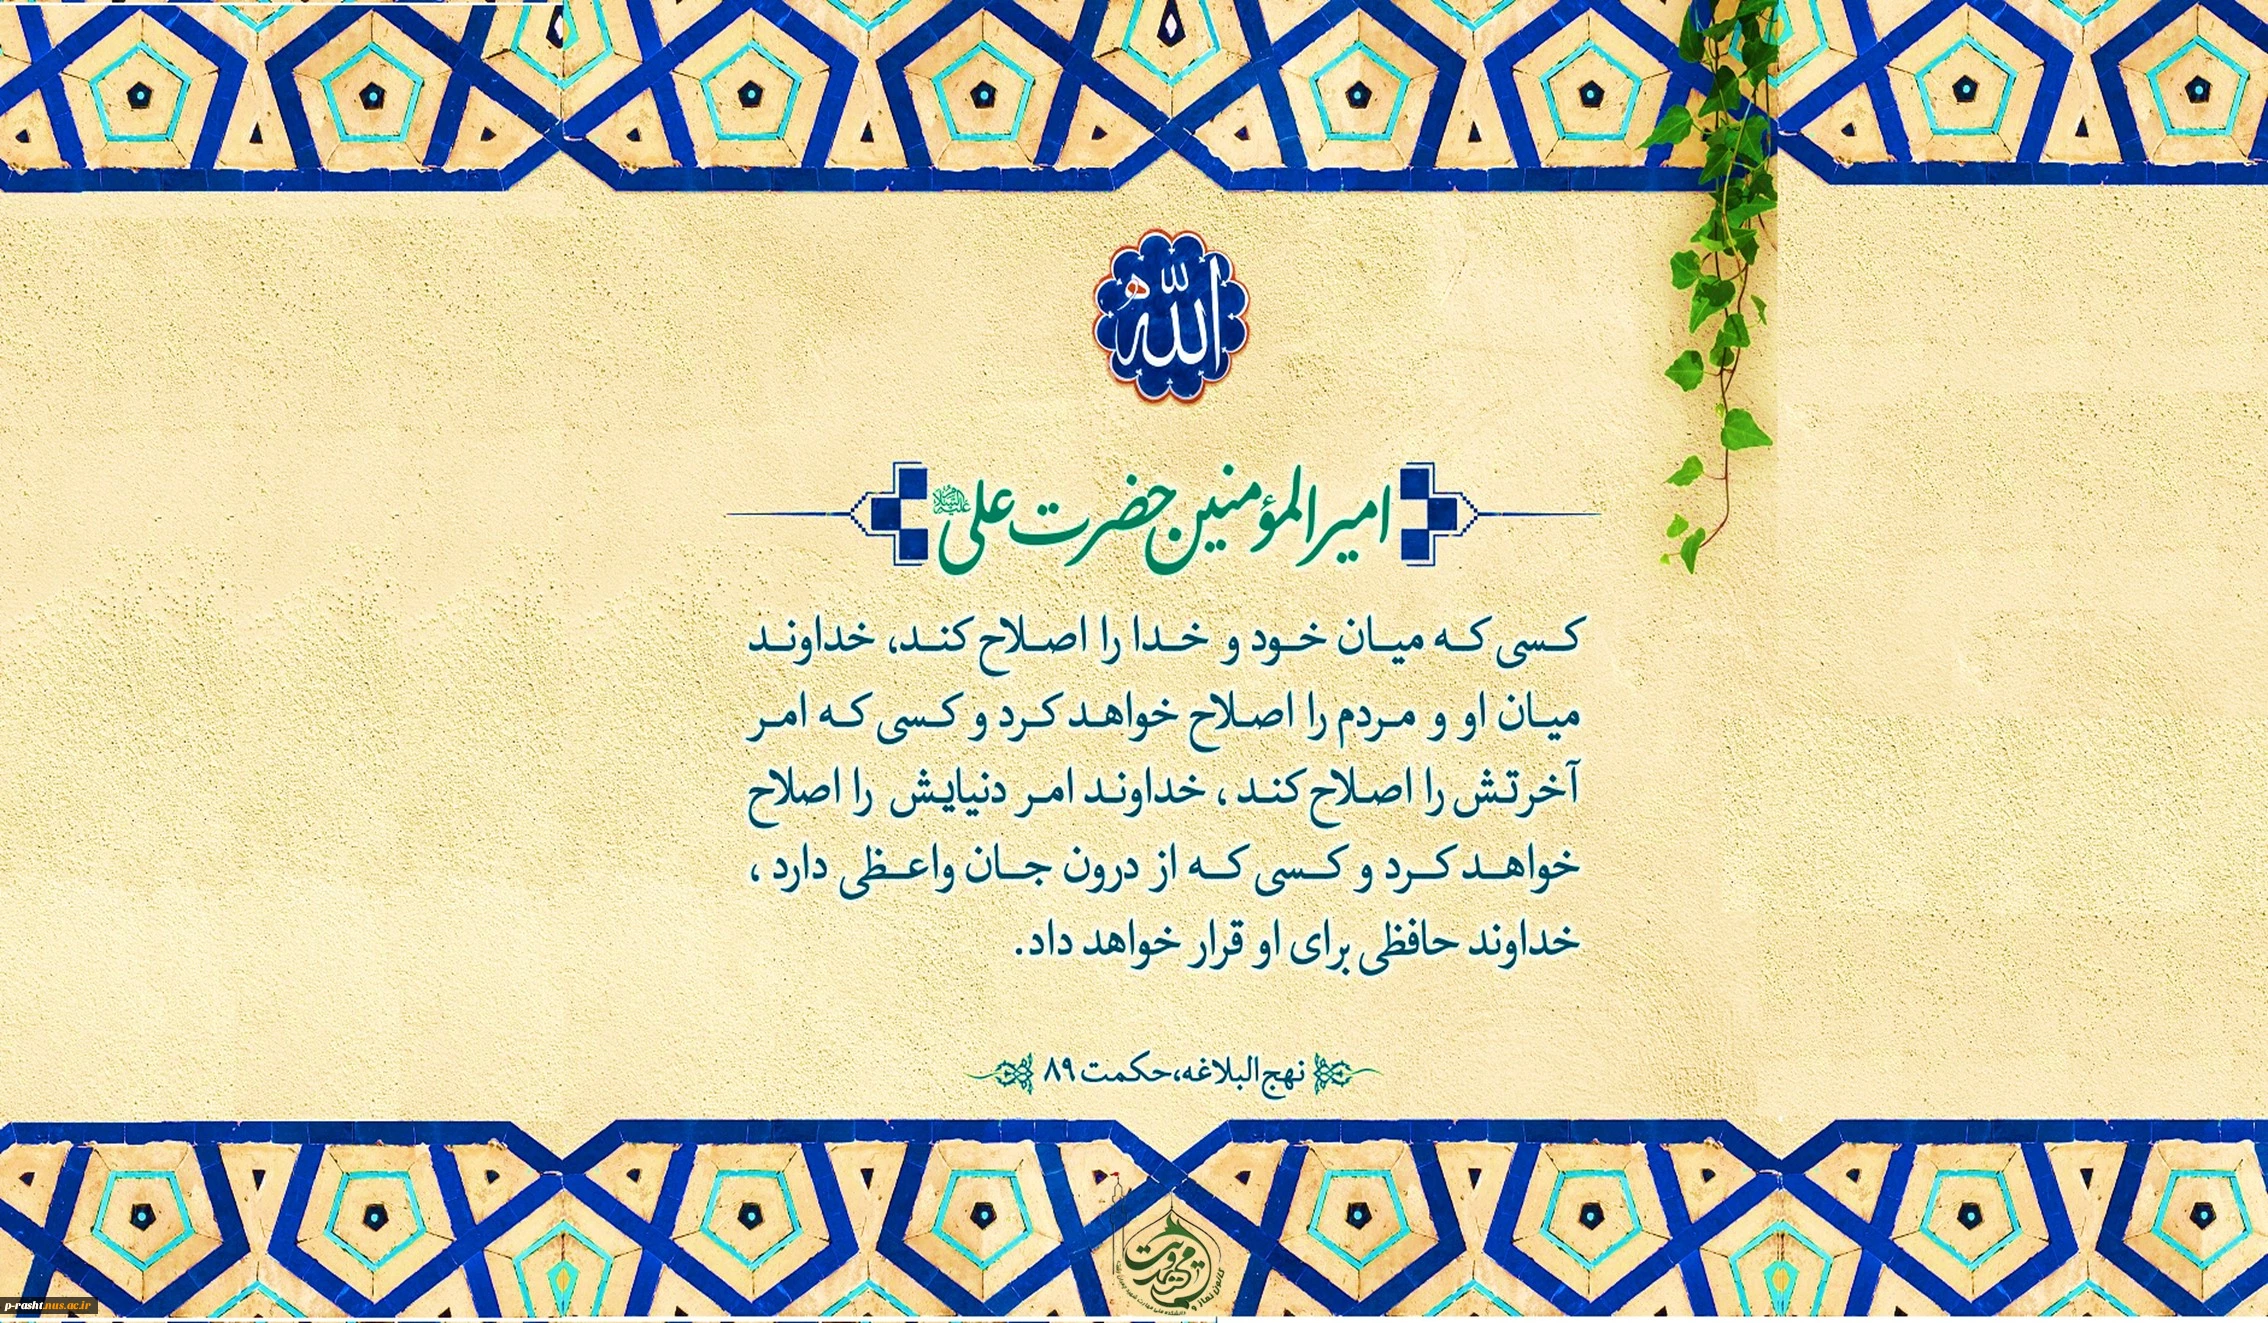 الله
امیرالمؤمنین حضرت علی علیه‌السلام
کسی که میان خود و خدا را اصلاح کند، خداوند
میان او و مردم را اصلاح خواهد کرد و کسی که امر
آخرتش را اصلاح کند، خداوند امر دنیایش را اصلاح
خواهد کرد و کسی که از درون جان واعظی دارد،
خداوند حافظی برای او قرار خواهد داد.
نهج‌البلاغه، حکمت ۸۹
مهدویت
p-rasht.nus.ac.ir